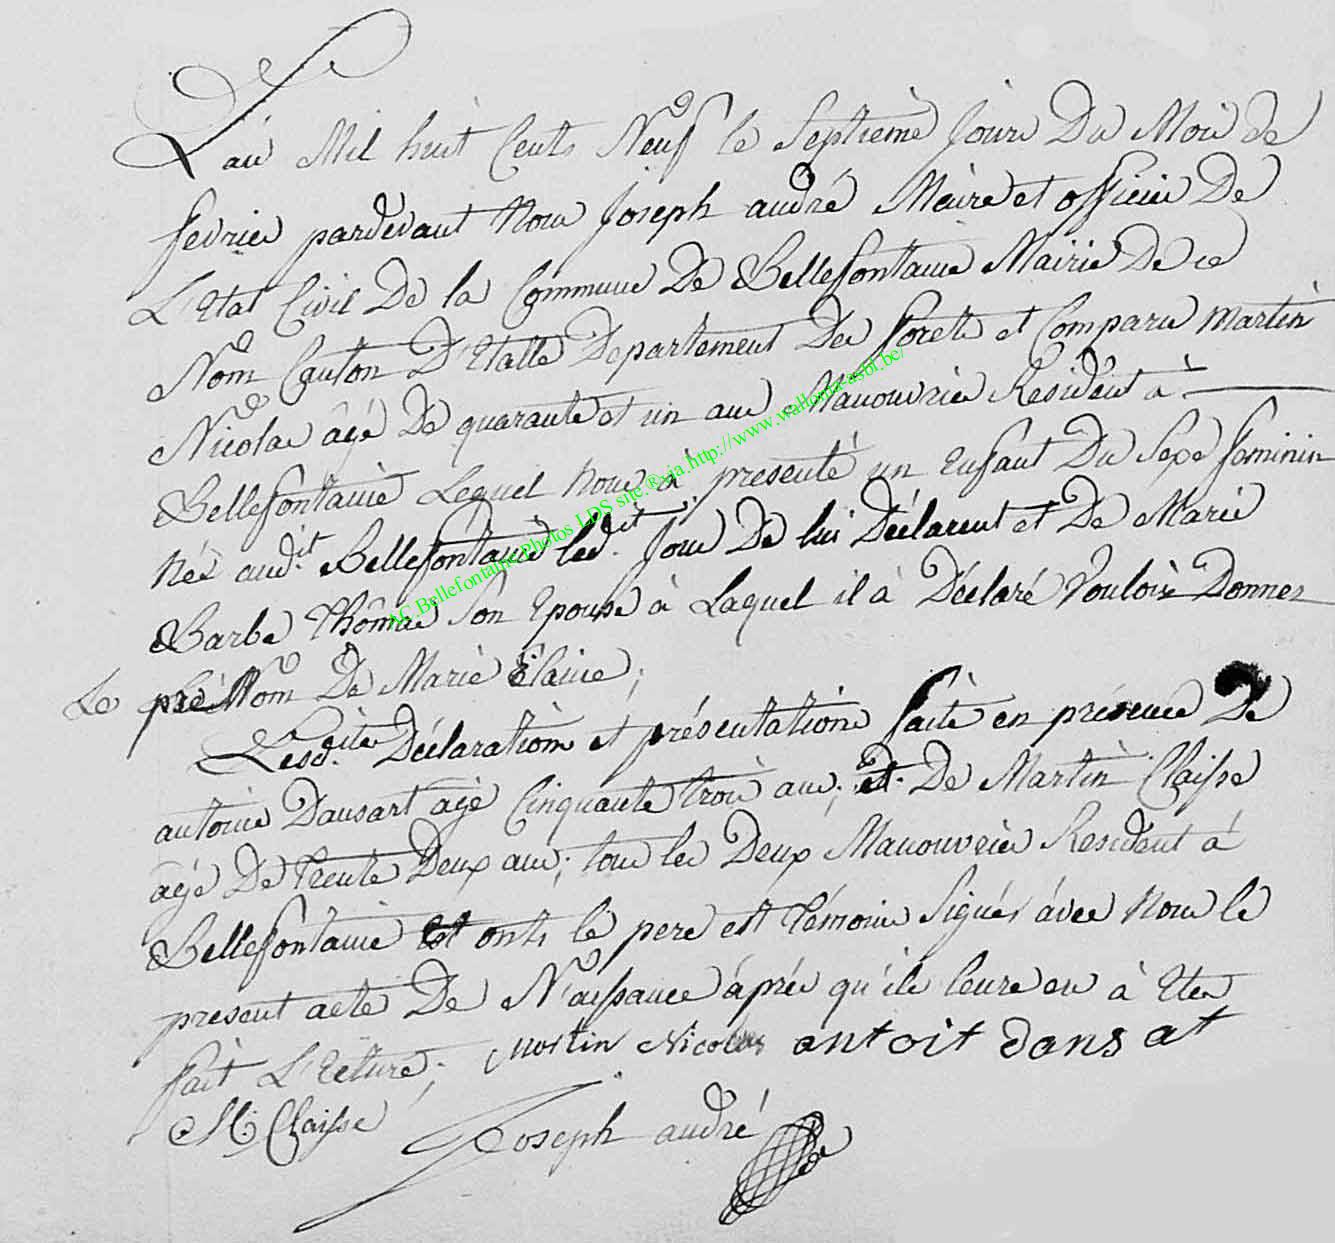 L'an Mil huit Cents Neuf le Septieme Jour Du Mois de
fevrier pardevant Nous Joseph andré Maire et officier De
L'Etat Civil De la Commune De Bellefontaine Mairie De ce
Nom Canton D'Etalle Departement Des forets et Comparu Martin
Nicolas âgé De quarante et un ans Manouvrier Resident à
Bellefontaine Lequel Nous à presenté un Enfant Du Sexe feminin
Née aud.it Bellefontaine led.it Jour De lui Déclarent et De Marie
Barbe Thômas Son Epouse à Laquel il à Déclaré Vouloir Donner
Le pre Nom De Marie Elaine;
Lesd.ites Déclaration et présentation faite en présence De
antoine Dansart agé Cinquante trois ans; et De Martin Claisse
agé De trente Deux ans; tous les Deux Manouvrier Resident à
Bellefontaine et onts le pere est témoins Signés avec Nous le
present acte De Naissance áprés qu'ils leure en à Eter
fait L'Ecture; Martin Nicolas antoit dansat
M: Claisse Joseph andré
AC.Bellefontaine.Photos LDS site.®.via.http://www.wallonia-asbl.be/